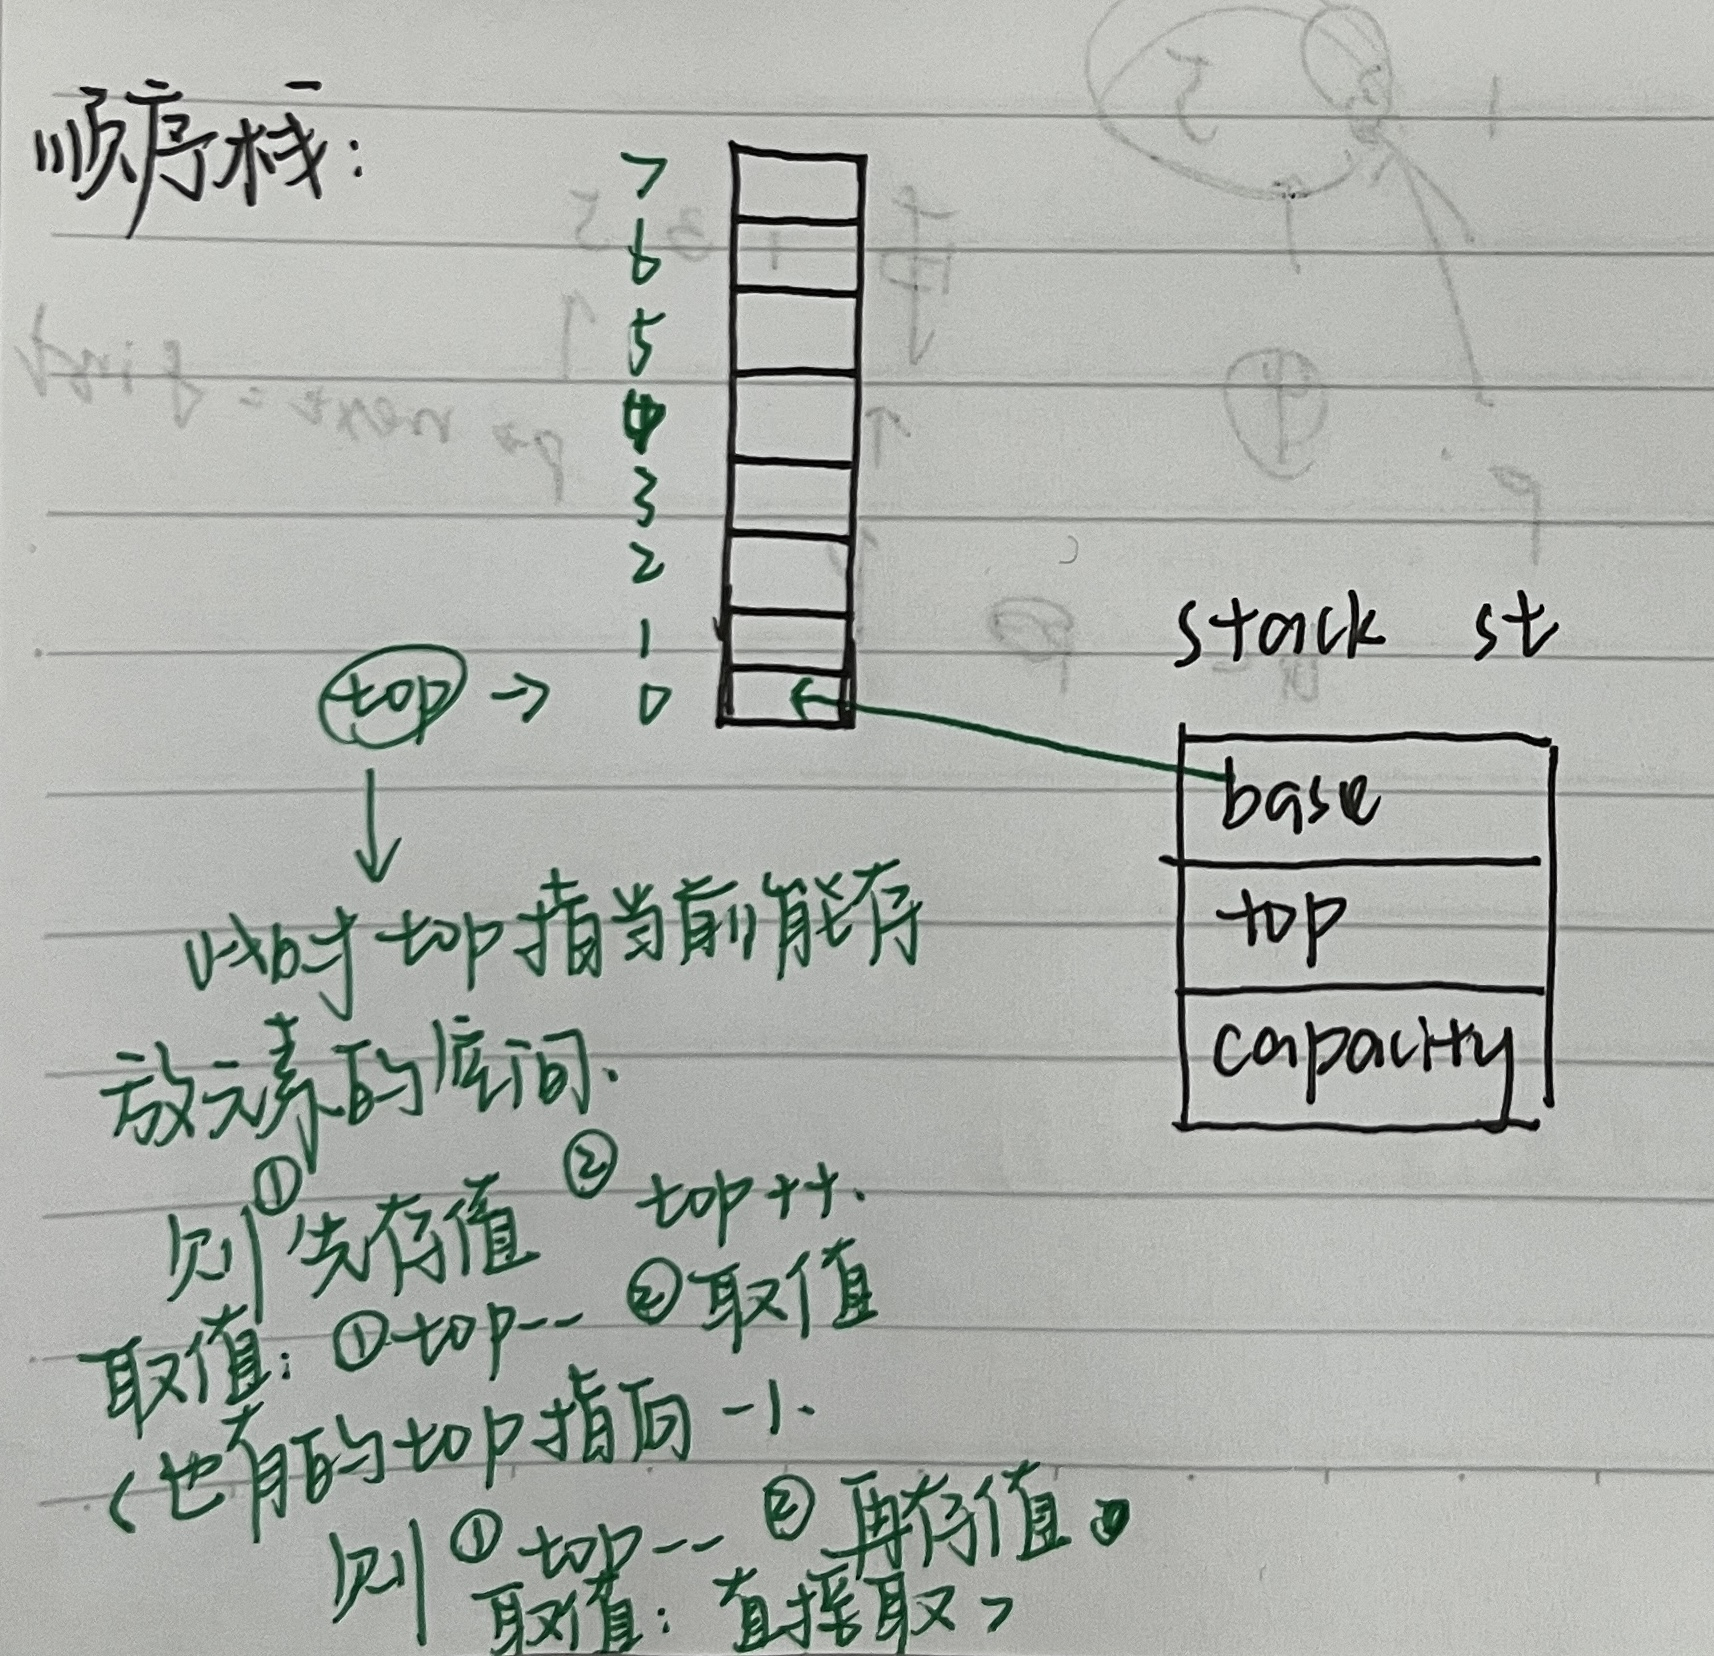 顺序栈:
7
6
5
4
3
2
1
top → 0
stack st
base
top
capacity
此时top指当前能存
放元素的空间.
则①先存值 ② top++.
取值: ①top-- ②取值
(也有的top指向-1.
则①top-- ②再存值。
取值: 直接取)